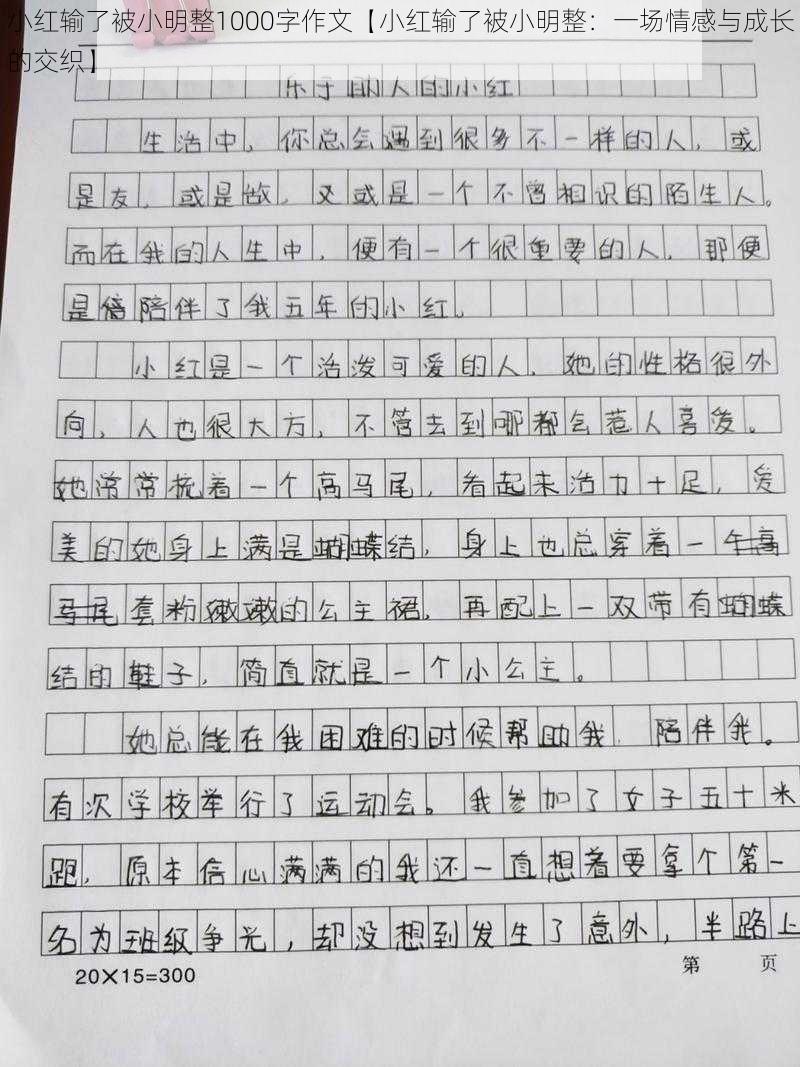 小红输了被小明整1000字作文【小红输了被小明整：一场情感与成长
的交织】
乐于助人的小红
生活中，你总会遇到很多不一样的人，或
是友，或是敌，又或是一个不曾相识的陌生人。
而在我的人生中，便有一个很重要的人，那便
是陪伴了我五年的小红。
小红是一个活泼可爱的人，她的性格很外
向，人也很大方，不管去到哪都会惹人喜爱。
她常常梳着一个高马尾，看起来活力十足，爱
美的她身上满是蝴蝶结，身上也总穿着一
套粉嫩嫩的公主裙，再配上一双带有蝴蝶
结的鞋子，简直就是一个小公主。
她总能在我困难的时候帮助我，陪伴我。
有次学校举行了运动会。我参加了女子五十米
跑，原本信心满满的我还一直想着要拿个第一
名为班级争光，却没想到发生了意外，半路上
20×15=300
第 页